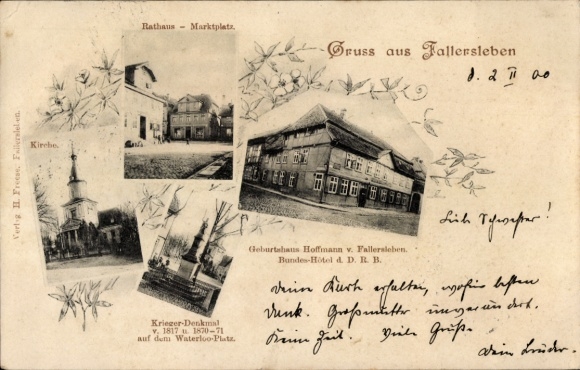 Rathaus – Marktplatz.
Gruss aus Fallersleben
d. 2 II 00
Kirche.
Verlag H. Freese, Fallersleben.
Geburtshaus Hoffmann v. Fallersleben.
Bundes-Hôtel d. D. R. B.
Krieger-Denkmal
v. 1817 u. 1870–71
auf dem Waterloo-Platz.
Liebe Schwester!
Deine Karte erhalten, wofür besten
Dank. Großmutter unverändert.
Keine Zeit. Viele Grüße
Dein Bruder.